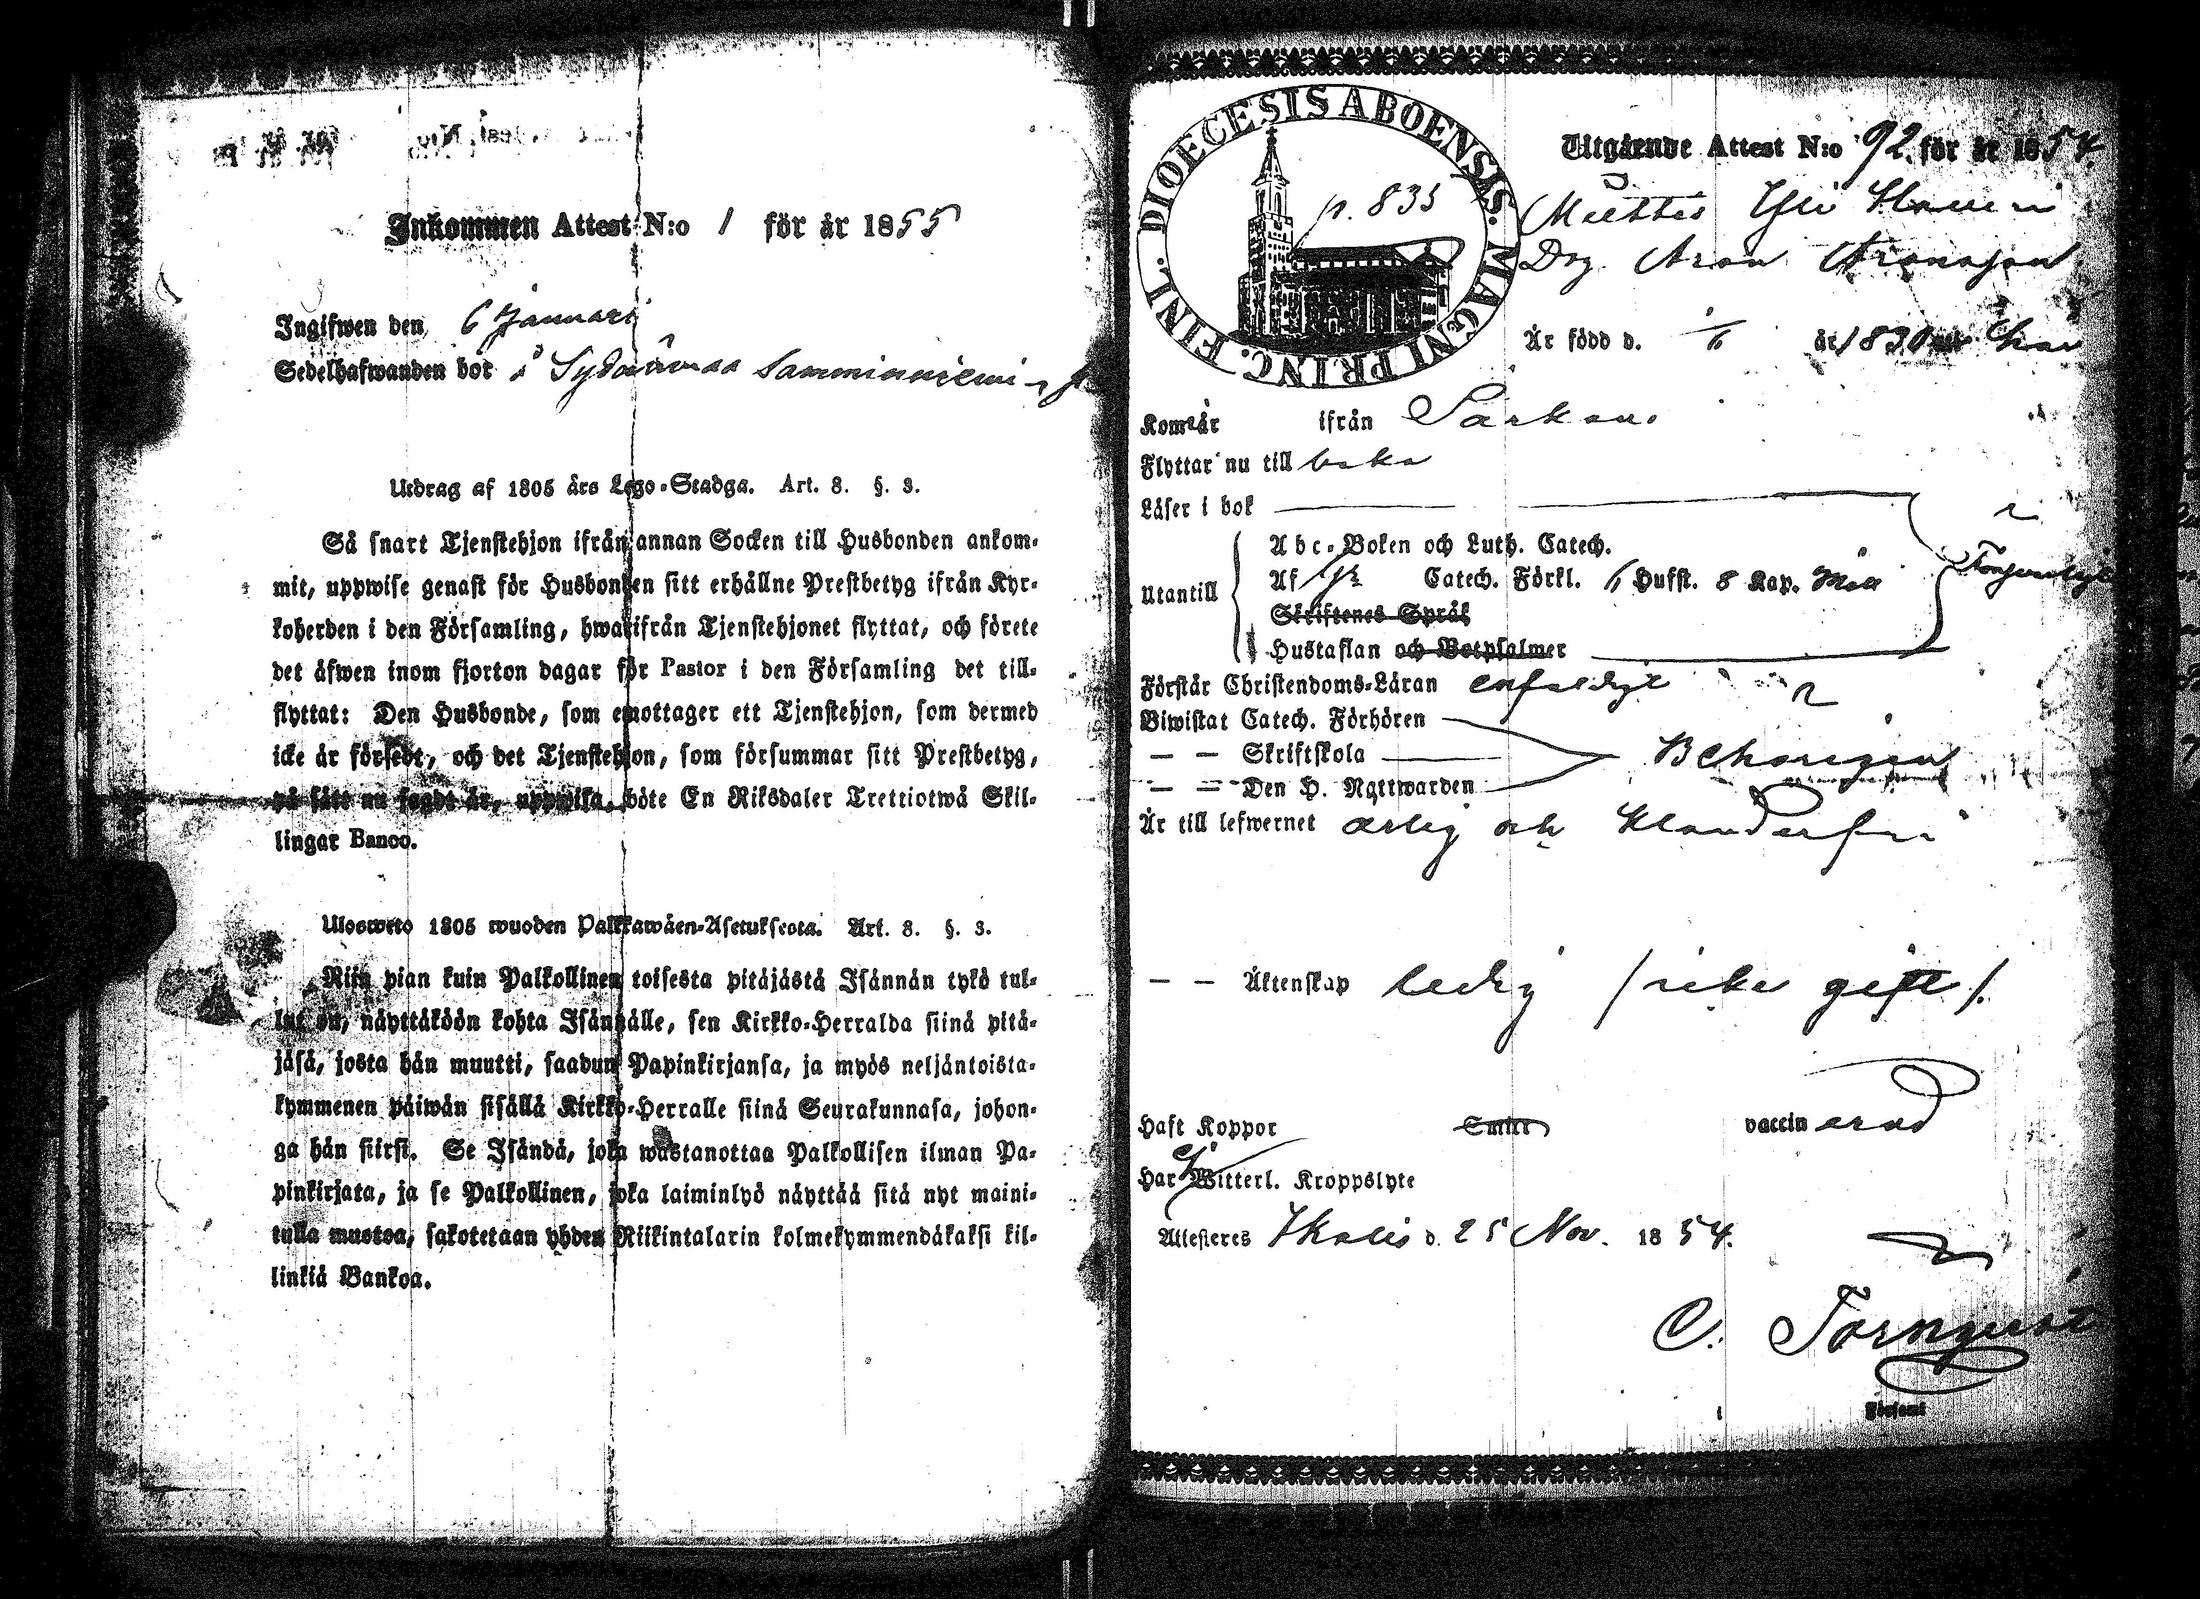 Inkommen Attest N:o 1 för år 1855
Ingifwen den 6 Januari
Sedelhafwanden bor å Sydänmaa
Utdrag af 1805 års Lego-Stadga. Art. 8. §. 3.
Så snart Tjenstehjon ifrån annan Socken till Husbonden ankom-
mit, uppwise genast för Husbonden sitt erhållne Prestbetyg ifrån Kyr-
koherden i den Församling, hwarifrån Tjenstehjonet flyttat, och förete
det äfwen inom fjorton dagar för Pastor i den Församling det till-
flyttat: Den Husbonde, som emottager ett Tjenstehjon, som dermed
icke är försedt, och det Tjenstehjon, som försummar sitt Prestbetyg,
på sätt nu sagdt är, uppwisa, böte En Riksdaler Trettiotwå Skil-
lingar Banco.
Ulosweto 1805 wuoden Palkkawäen-Asetuksesta. Art. 8. §. 3.
Niin pian kuin Palkollinen toisesta pitäjästä Isännän tykö tul-
lut on, näyttäköön kohta Isännälle, sen Kirkko-Herralda siinä pitä-
jäsä, josta hän muutti, saadun Papinkirjansa, ja myös neljäntoista-
kymmenen päiwän sisällä Kirkko-Herralle siinä Seurakunnasa, johon-
ga hän siirsi. Se Isändä, joka wastanottaa Palkollisen ilman Pa-
pinkirjata, ja se Palkollinen, joka laiminlyö näyttää sitä nyt maini-
tulla muotoa, sakotetaan yhden Riikintalarin kolmekymmendäkaksi kil-
linkiä Bankoa.
DIOECESIS ABOENSIS. MAGNI PRINC. FINL.
p. 835
Utgående Attest N:o 92. för år 1854.
Drg. Aron Aronsson
Är född d. 1/6 år 1830
Kom år ifrån Parkano
Flyttar nu till
Läser i bok
Utantill
Abc-Boken och Luth. Catech.
Af Catech. Förkl. Hufst. 8 Kap.
Skriftenes Språk
Hustaflan och Botpsalmer
Förstår Christendoms-Läran enfaldigt
Biwistat Catech. Förhören
— — Skriftskola
Behörigen
— — Den H. Nattwarden
Är till lefwernet ärlig och klanderfri
— — Äktenskap ledig /icke gift/.
Haft Koppor vaccinerad
Har ej Witterl. Kroppslyte
Attesteres Ikalis d. 25 Nov. 1854.
C. Törnqvist